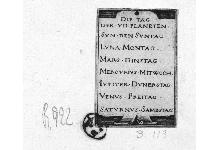 DIE TAG
DER VII PLANETEN
SVN · DEN SVNTAG
LVNA · MONTAG ·
MARS · DINSTAG
MERCVRIVS · MITWOCH ·
IVPITER · DVNERSTAG
VENVS · FREITAG ·
SATVRNVS · SAMBSTAG